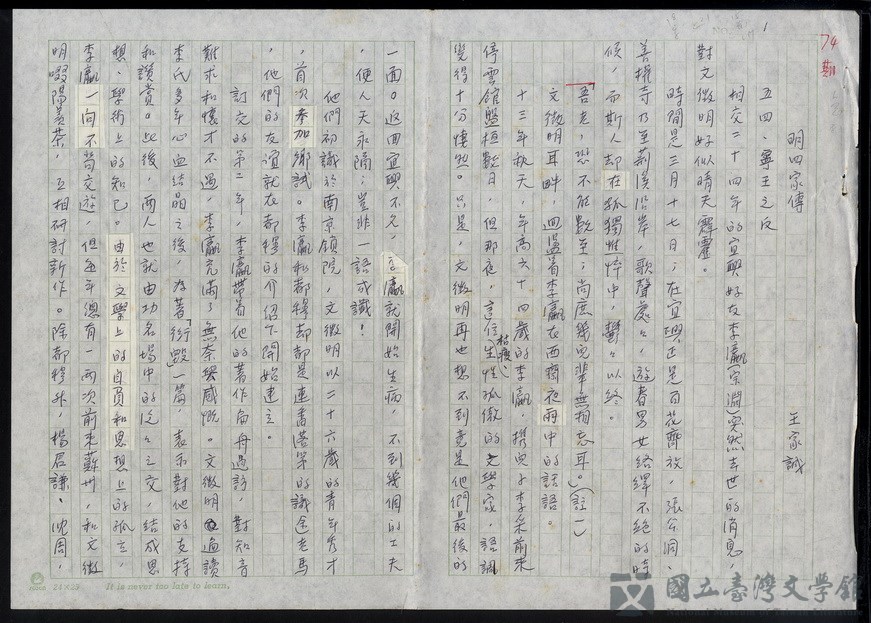 1
74
明四家傳
王家誠
五四、寧王之反
相交二十四年的宜興好友李瀛(宗淵)突然去世的消息，
對文徵明好似晴天霹靂。
時間是三月十七日；在宜興正是百花齊放，張公洞、
善權寺乃至荊溪沿岸，歌聲處處，遊春男女絡繹不絕的時
候，而斯人却在孤獨憔悴中，鬱鬱以終。
「吾老，恐不能數至；尚庶幾兒輩無相忘耳。」(註一)
文徵明耳畔，迴盪着李瀛在西齋夜雨中的話語。
十三年秋天，年高六十四歲的李瀛，携兒子李采前來
停雲館盤桓數日，但那夜，這位枯瘦、生性孤傲的文學家，語調
覺得十分悽愴。只是，文徵明再也想不到竟是他們最後的
一面。返回宜興不久，李瀛就開始生病，不到幾個的工夫
，便人天永隔；豈非一語成讖！
他們初識於南京領院，文徵明以二十六歲的青年秀才
，首次參加鄉試。李瀛和都穆却都是連番落第的識途老馬
，他們的友誼就在都穆的介紹下開始建立。
訂交的第二年，李瀛帶着他的著作届舟過訪，對知音
難求和懷才不遇，李瀛充滿了無奈與感慨。文徵明過讀
李氏多年心血結晶之後，為著「衒毀」一篇，表示對他的支持
和讚賞。此後，兩人也就由功名場中的泛泛之交，結成思
想、學術上的知己。由於文學上的自負和思想上的孤立，
李瀛一向不苟交遊，但每年總有一兩次前來蘇州，和文徵
明啜陽羨茶，互相研討新作。除都穆外，楊君謙、沈周，
24×25 It is never too late to learn.
國立臺灣文學館